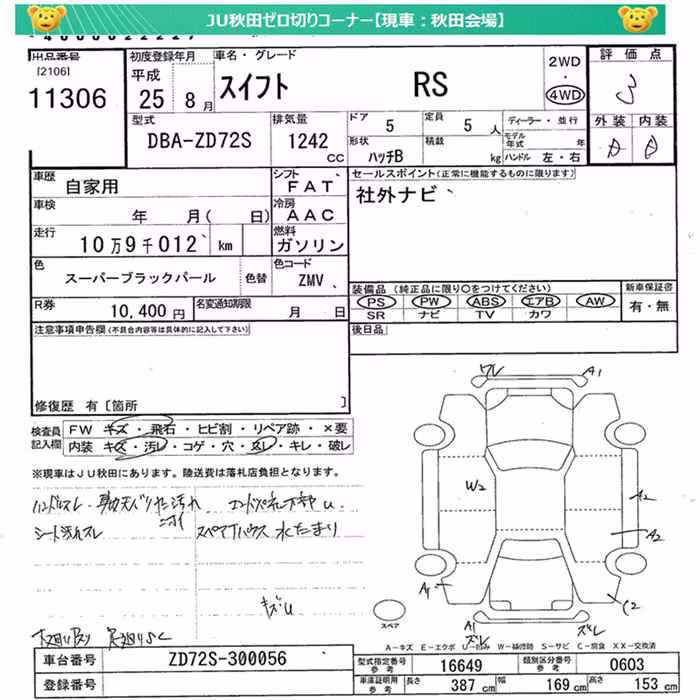 JU秋田ゼロ切りコーナー【現車:秋田会場】
出品番号
[2106]
11306
初度登録年月
平成
25 8月
車名・グレード
スイフト RS
2WD
・
4WD
評価点
3
外装 内装
A B
型式
DBA-ZD72S
排気量
1242
CC
ドア
5
定員
5 人
形状
ハッチB
積載
kg
ディーラー・並行
モデル年式 年
ハンドル 左・右
車歴
自家用
シフト
FAT
車検
年 月( 日)
冷房
AAC
走行
10万9千012 km
燃料
ガソリン
色
スーパーブラックパール
色替
色コード
ZMV
R券
10,400円
名変通知期限
月 日
セールスポイント(正常に機能するものに限ります)
社外ナビ
装備品 (純正品に限り○をつけてください)
PS PW ABS エアB AW
SR ナビ TV カワ
新車保証書
有・無
後日品
注意事項申告欄(不具合内容等は具体的に記入して下さい)
修復歴 有〔箇所 〕
検査員記入欄
FW キズ・飛石・ヒビ割・リペア跡・×要
内装 キズ・汚レ・コゲ・穴・スレ・キレ・破レ
※現車はJU秋田にあります。陸送費は落札店負担となります。
ハンドルスレ
シート汚れスレ
エンドパネル下部U
スペアTハウス 水たまり
キズU
ワレ A1
W2
A2
A2
A1
C2
A1
ズレ
ズレ
スペア
A-キズ E-エクボ U-凹み W-補修跡 S-サビ C-腐食 XX-交換済
車台番号
ZD72S-300056
登録番号
型式指定番号
参考
16649
類別区分番号
参考
0603
車庫証明用
参考
長さ
387 cm
幅
169 cm
高さ
153 cm